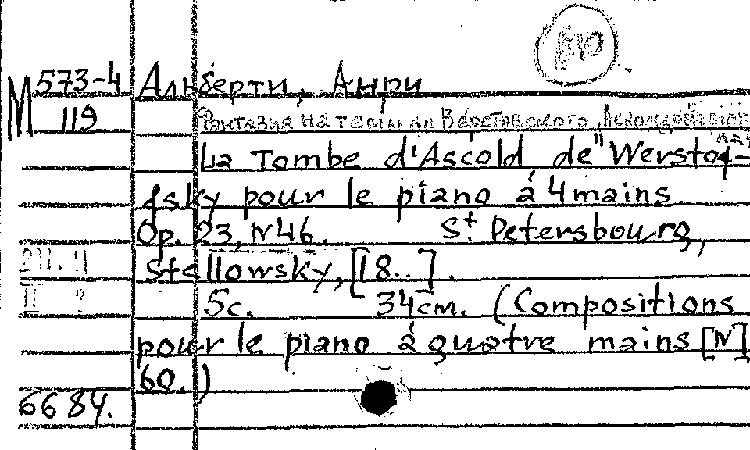 М 573-4 Альберти, Анри
119 Фантазия на темы из Верстовского
La Tombe d'Ascold de "Werstof-
fsky pour le piano à 4 mains
Op. 23, N46. St. Petersbourg,
Stellowsky, [18..].
5c. 34cm. (Compositions
pour le piano à quatre mains [N]
60.)
6684.